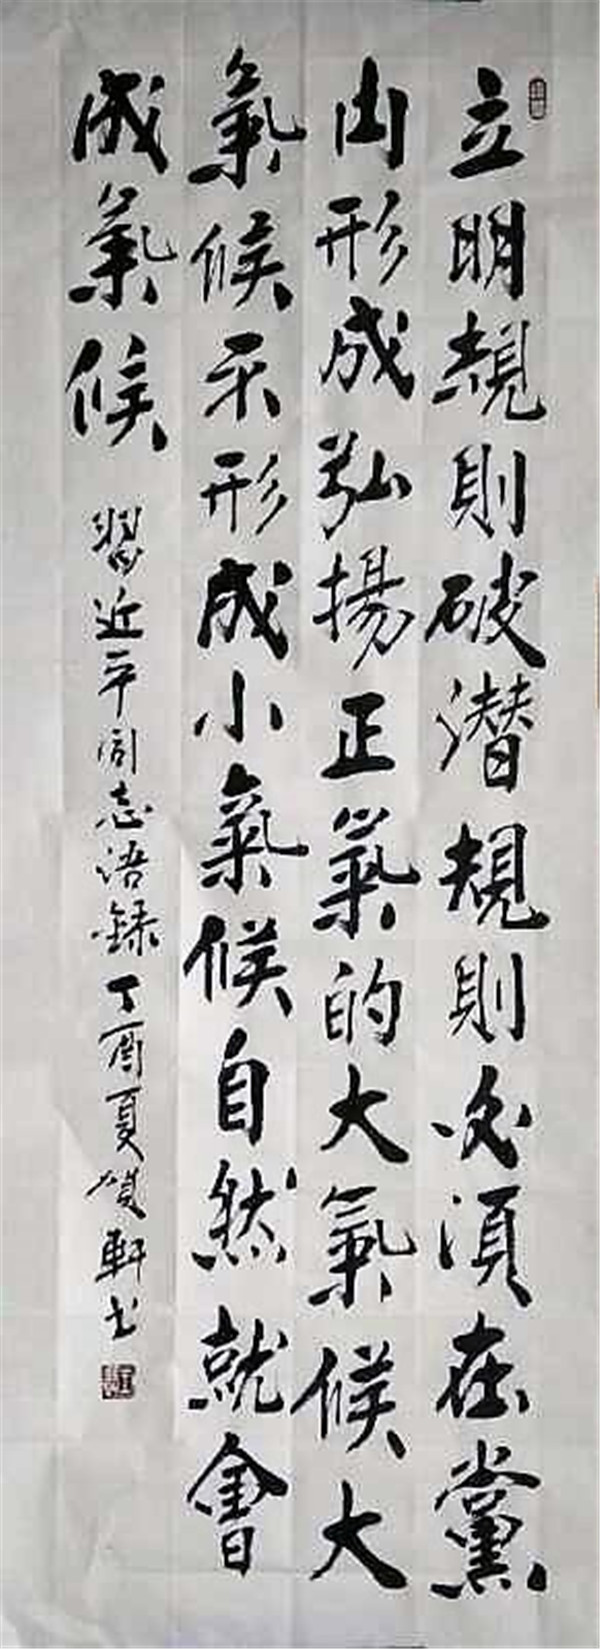 立明規則破潜規則必須在黨
内形成弘揚正氣的大氣候大
氣候不形成小氣候自然就會
成氣候
習近平同志语録丁酉夏軒书